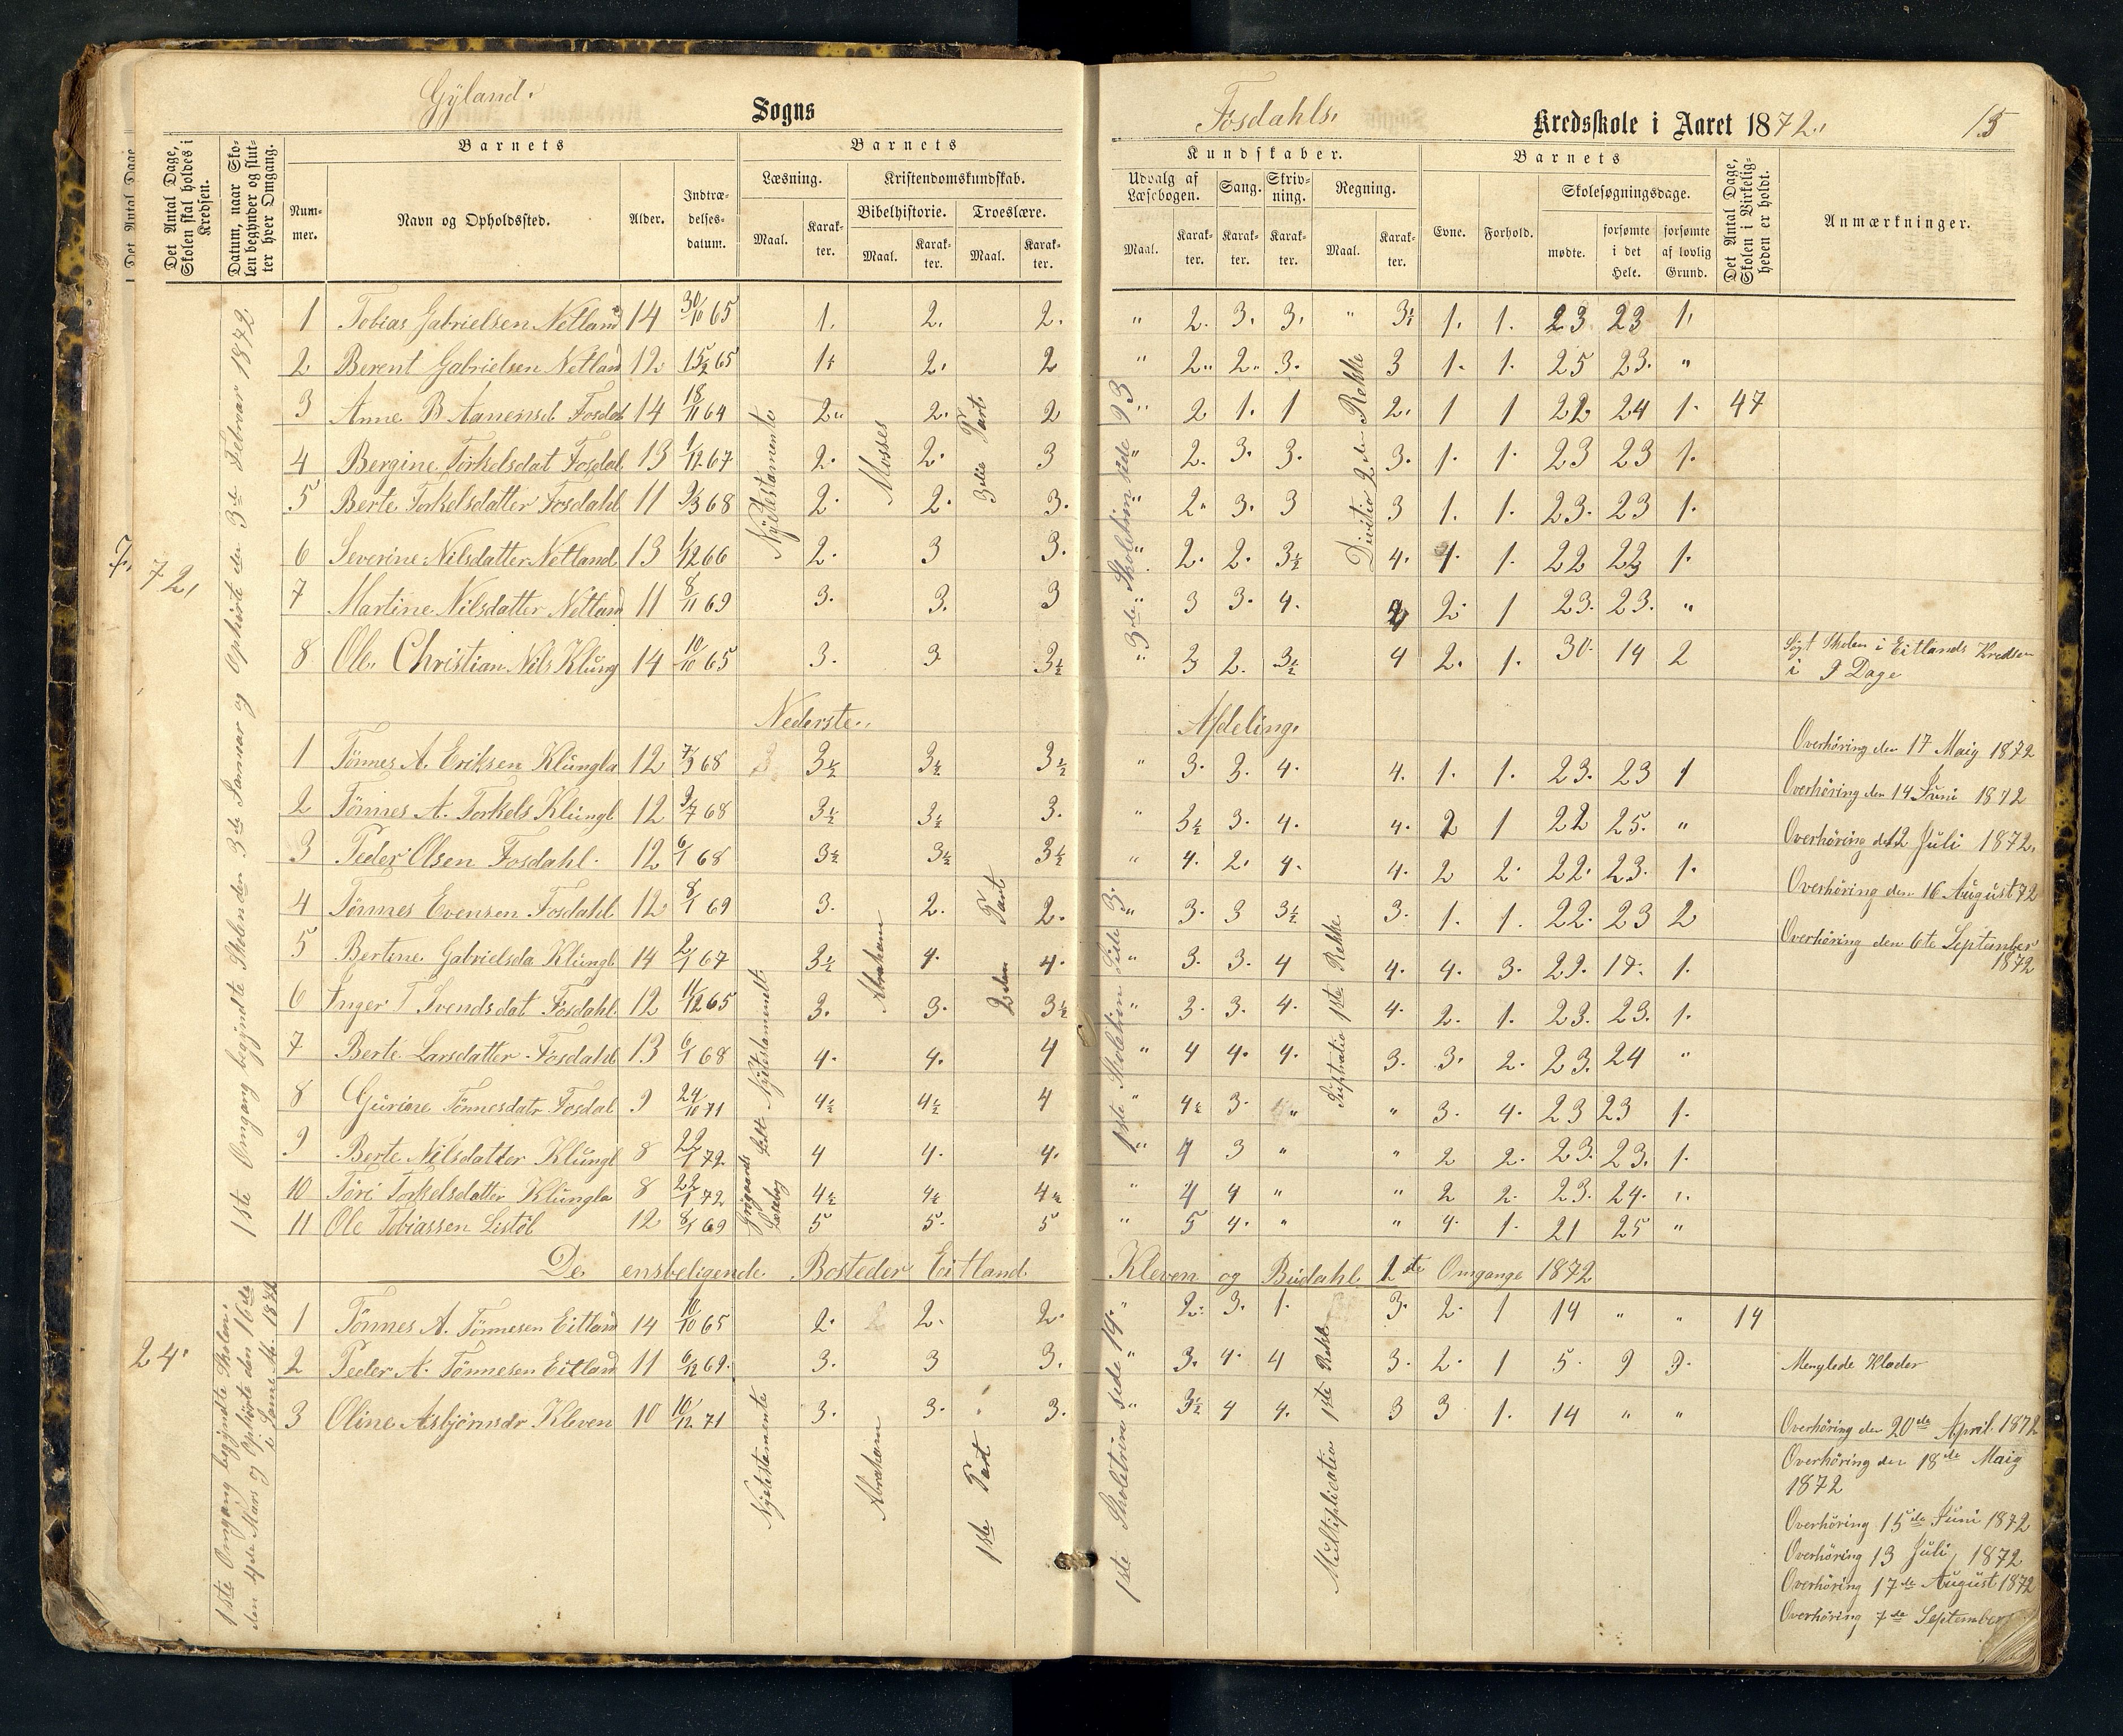 Gyland.
Sogns
Fosdahls.
Kredsskole i Aaret 1872.
15
Det Antal Dage, Skolen skal holdes i Kredsen.
Datum, naar Skolen begynder og slutter hver Omgang.
Barnets
Nummer.
Navn og Opholdssted.
Alder.
Indtrædelsesdatum.
Barnets
Læsning.
Maal.
Karakter.
Kristendomskundskab.
Bibelhistorie.
Maal.
Karakter.
Troeslære.
Maal.
Karakter.
Kundskaber.
Udvalg af Læsebogen.
Maal.
Karakter.
Sang.
Karakter.
Skrivning.
Karakter.
Regning.
Maal.
Karakter.
Barnets
Evne.
Forhold.
Skolesøgningsdage.
mødte.
forsømte i det Hele.
forsømte af lovlig Grund.
Det Antal Dage, Skolen i Virkeligheden er holdt.
Anmærkninger.
72,
1ste Omgang begyndte Skolen den 3de Januar og Ophørt den 3de Februar 1872
Nyetestamente
Mosses
3die Part
3die Skoletrin side 93
Divition 2den Rekke
1 Tobias Gabrielsen Netland 14 30/10 65 1. 2. 2. " 2. 3. 3. " 3½ 1. 1. 23 23 1.
2 Berent Gabrielsen Netland 12 15/2 65 1½ 2. 2 " 2.. 2.. 3. 3 1. 1. 25 23. "
3 Anne B Aanensd Fosdal 14 18/11 64 2.. 2. 2 " 2 1. 1 2. 1 1 22 24 1. 47
4 Bergine Torkelsdat Fosdal 13 1/12 67 2. 2. 3 " 2. 3. 3. 3. 1. 1. 23 23 1.
5 Berte Torkelsdatter Fosdahl 11 9/3 68 2. 2. 3. " 2. 3. 3 3 1. 1. 23. 23 1.
6 Severine Nilsdatter Netland 13 1/12 66 2. 3 3. " 2. 2. 3½ 4. 1. 1. 22 23 1.
7 Martine Nilsdatter Netland 11 8/11 69 3. 3. 3 " 3 3. 4. 4 2. 1 23. 23. "
8 Ole Christian Nils Klung 14 10/10 65 3. 3. 3½ " 3 2. 3½ 4 2. 1. 30. 14 2 Søgt Skolen i Eitlands Kredsen
i 9 Dage
Nederste.. Afdeling.
Lidt Nyetestamentt
Abraham
2den Part
1ste Skoletrin Side 3.
1ste Rekke
1 Tönnes A. Eriksen Klungla 12 7/3 68 3½ 3½ 3½ " 3. 3. 4. 4. 1. 1. 23. 23 1
Overhöring den 17 Maig 1872
2 Tönnes A. Torkels Klungl 12 9/7 68 3½ 3½ 3. " 3½ 3. 4. 4. 2 1 22 25. "
Overhöring den 14 Juni 1872
3 Peder Olsen Fosdahl. 12 6/1 68 3½ 3½ 3½ " 4. 2. 4. 4. 2 2. 22. 23. 1.
Overhöring d 12 Juli 1872.
4 Tönnes Evensen Fosdahl 12 8/1 69 3. 2. 2. " 3. 3 3½ 3. 1. 1. 22. 23 2
Overhöring den 16 August 72
5 Bertine Gabrielsda Klungl 14 2/1 67 3½ 4. 4. " 3. 3. 4 4. 4. 3. 29. 17. 1.
Overhöring den 6te September
1872
6 Inger T Svendsdat Fosdahl. 12 11/12 65 3. 3. 3½ " 3. 3. 4. 4. 2. 1. 23. 23. 1.
7 Berte Larsdatter Fosdahl 13 6/1 68 4. 4. 4 " 4 4. 4. 3. 3. 2. 23. 24 "
8 Guriane Tönnesdatr Fosdal 9 24/10 71 4½ 4½ 4 " 4½ 3. " " 3. 4. 23 23 1.
9 Berte Nilsdatter Klungl 8 22/1 72 4 4. 4. " 4 3 " " 2 2. 23. 23. 1.
Læsebog
10 Töri Torkelsdatter Klungla 8 22/1 72 4½ 4½ 4½ " 4 4 " " 2 2. 23. 24. 1.
11 Ole Tobiassen Listöl 12 8/1 69 5 5. 5 " 5 4. " " 4. 1. 21 25 "
De ensbeligende Bosteder Eitland Kleven og Budahl 1ste Omgange 1872
24.
1ste Omgang begyndte Skolen
den 4de Mars og Ophörte den 16de
i Samme M. 1872
Nyetestamente
Abraham
1ste Part
1ste Skoletrin side 14.
Multiplication 1ste Rekke
1 Tönnes A. Tönnesen Eitland 14 10/10 65 2. 2. 2. " 2. 3. 1. 3. 2. 1 14 " " 14
2 Peder A. Tönnesen Eitland 11 6/12 69. 3. 3 3. " 3. 4. 4 3. 2. 1 5. 9 9. Menglede Klæder
3 Oline Asbjörnsdr Kleven 10 10/12 71 3. 3. 3. " 3½ 4 4. 3 3 1. 14 " "
Overhöring den 20de April 1872
Overhöring den 18de Maig
1872
Overhöring 15de Juni 1872
Overhöring 13 Juli, 1872
Overhöring 17de August 1872
Overhöring 7de September